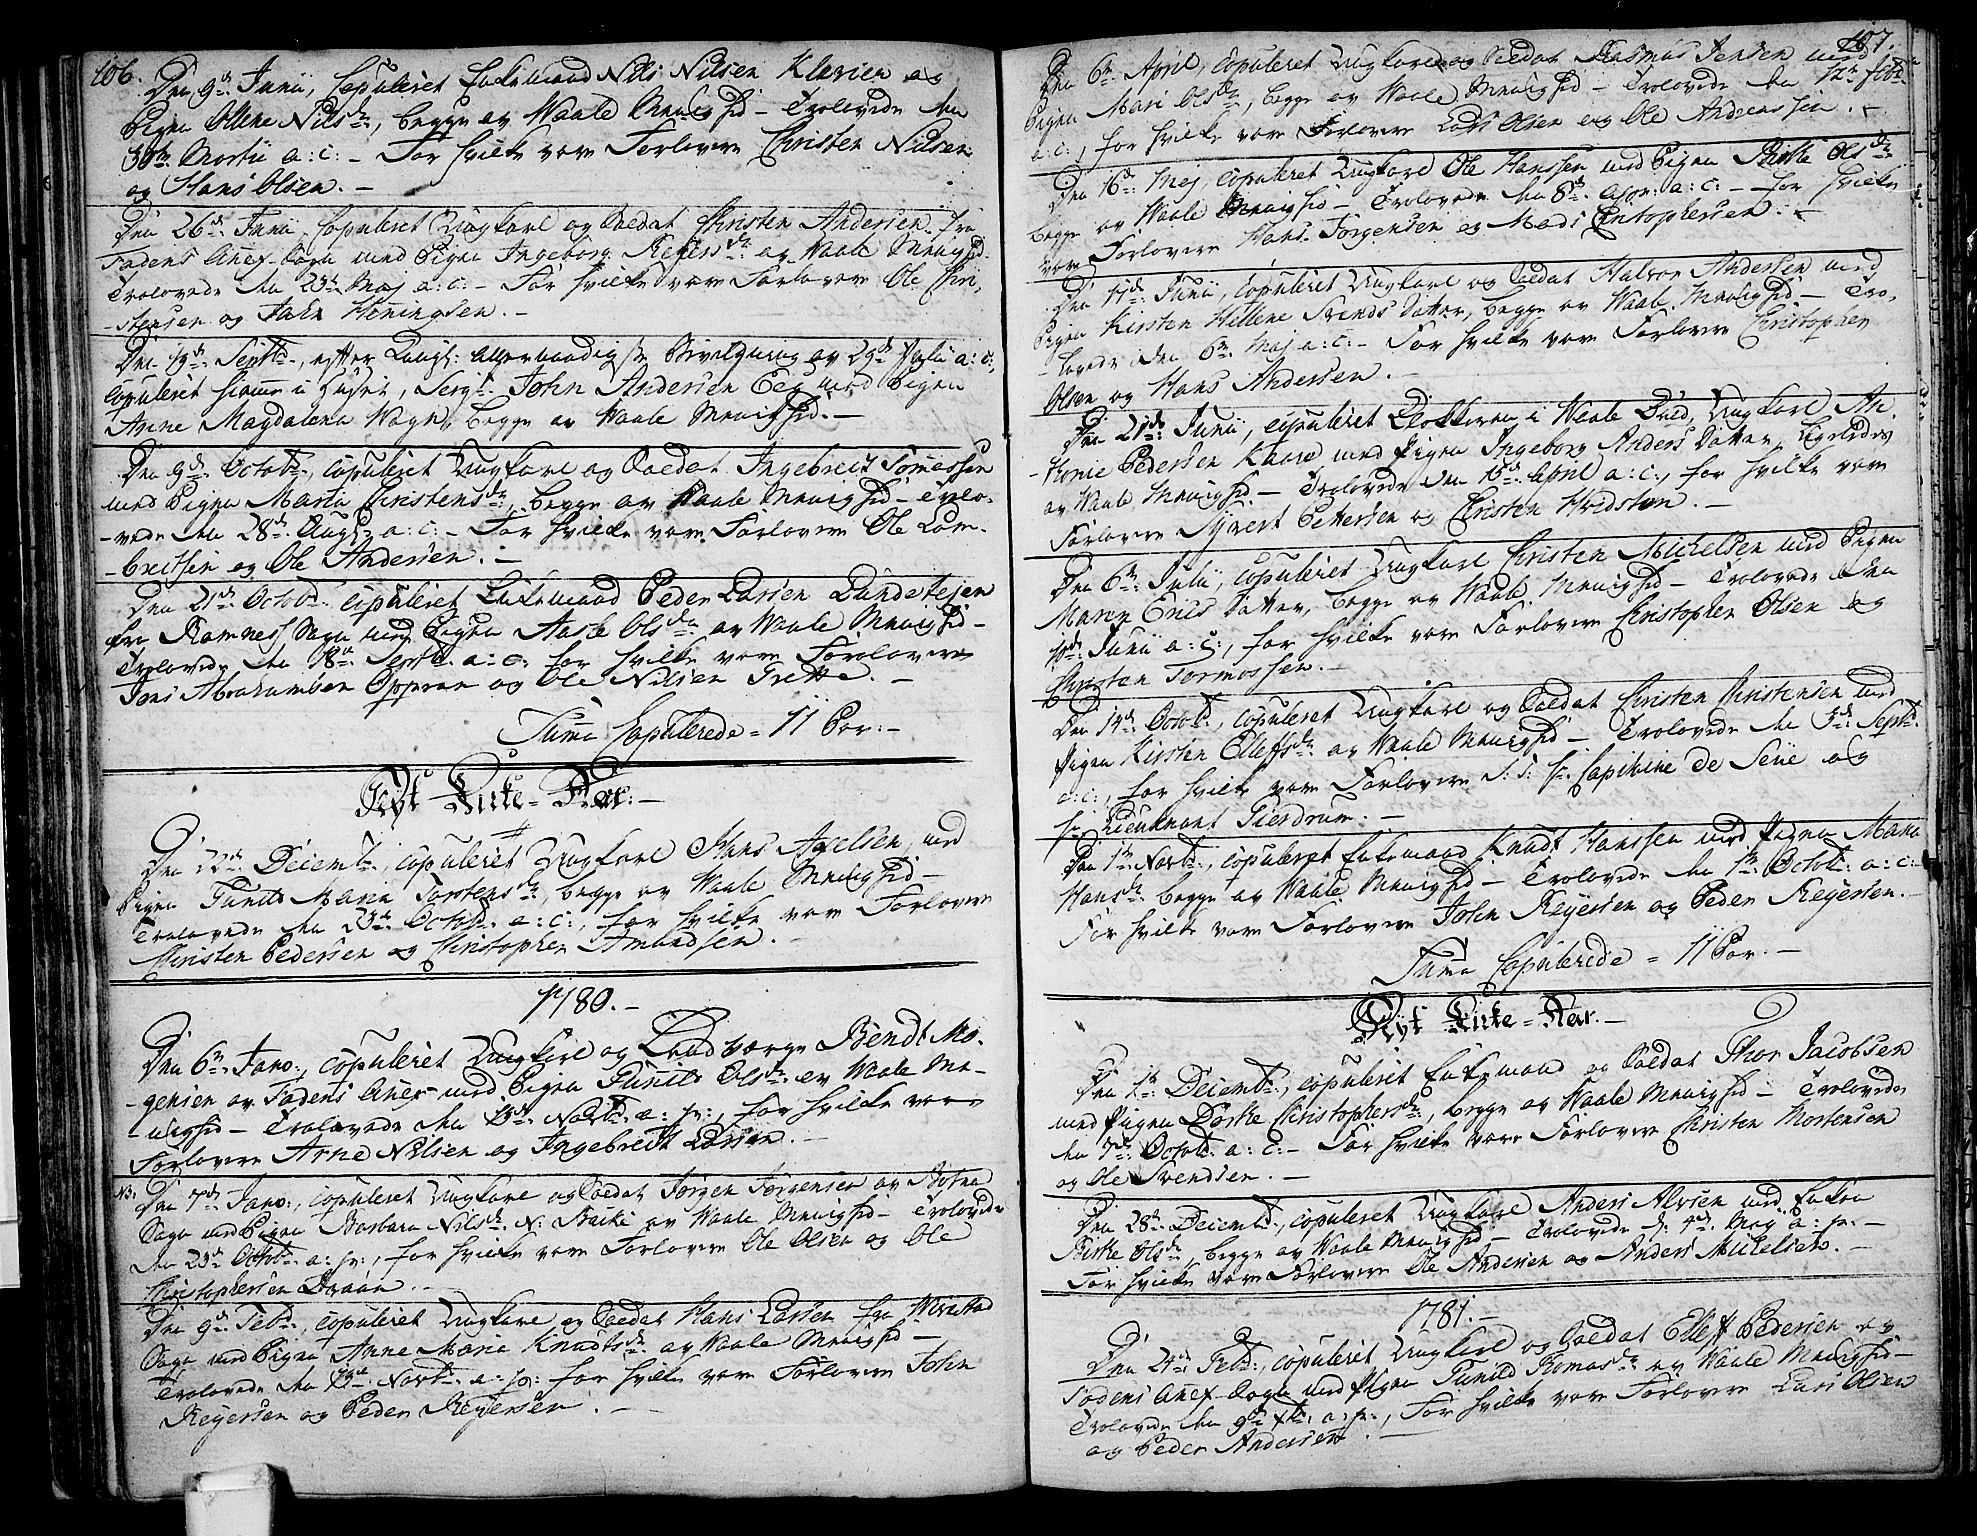 106.
Den 9de Junii, Copuleret Enkemand Nils Nilsen Klavien og
Pigen Ollene Nilsdr, begge av Waale Menighd - Trolovede den
30te Martii a: c: - For hvilke vare Forlovere Christen Nilsen
og Hans Olsen. -
Den 26de Junii, Copuleret Ungkarl og Soldat Christen Andersen fra
Fadens Anex-Sogn med Pigen Ingeborg Reyersdr: av Waale Menighd.
Trolovede den 23de Maj a: c: - For hvilke vare Forlovere Ole Chri,
-stensen og Jahn Honingsen. -
Den 19de Septbr:, efter Kongl: allernaadigste Bevilgning av 29de Julii a: c:,
Copuleret hiemme i Huset, Sergt: John Andersen Eeg med Pigen
Anne Magdalena Wagn, begge av Waale Menighd. -
Den 9de Octobr:, copuleret Ungkarl og Soldat Ingebreit Tomessen
med Pigen Maria Christensdr, begge av Waale Menighd - Trolo-
-vede den 28de Augst a: c: - For hvilke vare Forlovere Ole Lam-
-bretsen og Ole Andersen. -
Den 21de Octobr: copuleret Enkemand Peder Larsen Lundetejen
fra Ramnes Sogn med Pigen Aase Olsdr av Waale Menighd -
Trolovede den 18de Septbr. a: c: for hvilke vare Forlovere
Jens Abrahamsen Oppran og Ole Nilsen Trette. -
Suma Copulerede = 11 Par. -
Nyt Kirke-Aar: -
Den 22de Decembr:, copuleret Ungkarl Hans Axelsen, med
Pigen Gunild Maria Torstensdr, begge av Waale Menighd -
Trolovede den 23de Octobr. a: c:, for hvilke vare Forlovere
Christen Pedersen og Christopher Amundsen. -
1780. -
Den 6te Janr:, copuleret Ungkarl og Landværge Bendt Mo-
-gensen av Fadens Anex med Pigen Gunild Olsdr av Waale Me-
-nighd - Trolovede den 13de Novbr. a: pr:, for hvilke vare
Forlovere Arne Nilsen og Ingebredt Larsen. -
NB: Den 7de Janr:, copuleret Ungkarl og Soldat Jørgen Jørgensen av Botne
Sogn med Pigen Barbara Nilsdr. N: Backe av Waale Menighd - Trolovede
den 23de Octobr. a: pr:, for hvilke vare Forlovere Ole Olsen og Ole
Christophersen Braan. -
Den 9de Febr:, copuleret Ungkarl og Soldat Hans Larsen fra
Sogn med Pigen Anne Marie Knudtsdr av Waale Menighd -
Trolovede den Novbr. a: pr: for hvilke vare Forlovere John
Reyersen og Peder Reyersen. -
107.
Den 6te April, copuleret Ungkarl og Soldat Rasmus Jensen med
Pigen Mari Olsdr, begge av Waale Menighd - Trolovede den 12te Febr.
a: c:, for hvilke vare Forlovere Lars Olsen og Ole Andreassen. -
Den 16de Maj, copuleret Ungkarl Ole Hanssen med Pigen Birthe Olsdr
begge av Waale Menighd - Trolovede den 8de April: a: c: - for hvilke
vare Forlovere Hans Jørgensen og Mads Cristophersen. -
Den 17de Junii, copuleret Ungkarl og Soldat Halvor Andersen med
Pigen Kirsten Hellene Svends Datter, begge av Waale Menighd - Tro-
-lovede den 6te Maj a: c: - For hvilke vare Forlovere Christopher
Olsen og Hans Andersen. -
Den 21de Junii, copuleret Klokkeren i Waale Præd, Ungkarl An-
-thonie Pedersen Kaare med Pigen Ingeborg Anders Datter, ligeledes
av Waale Menighd - Trolovede den 15de April a: c:, for hvilke vare
Forlovere Syvert Pettersen og Christen Hvidsten. -
Den 6te Julii, copuleret Ungkarl Christen Michelsen med Pigen
Maren Erics Datter, begge av Waale Menighd - Trolovede den
10de Junii a: c:, for hvilke vare Forlovere Christopher Olsen og
Christen Tormossen. -
Den 14de Octobr:, copuleret Ungkarl og Soldat Christen Christensen med
Pigen Kirsten Elleffsdr: av Waale Menighd - Trolovede den 3de Septbr.
a: c:, for hvilke vare Forlovere S: T: Hr. Capitaine de Seue og
Hr. Lieutenant Tierdrum: -
Den 1te Novbr:, copuleret Enkemand Knudt Hanssen med Pigen Maria
Hansdr: begge av Waale Menighd - Trolovede den 1te Octobr: a: c:
For hvilke vare Forlovere John Reyersen og Peder Reyersen. -
Suma Copulerede = 11 Par. -
Nyt Kirke-Aar. -
Den 1te Decembr:, copuleret Enkemand og Soldat Thor Jacobsen
med Pigen Dorthe Christophersdr:, begge av Waale Menighd - Trolovede
den 7de Octobr: a: c: - For hvilke vare Forlovere Christen Mortensen
og Ole Svendsen. -
Den 28de Decembr:, copuleret Ungkarl Anders Alvsen med Enken
Birthe Olsdr, begge av Waale Menighd - Trolovede d: 4de Maj a: pr: -
For hvilke vare Forlovere Ole Andersen og Anders Michelsen. -
1781. -
Den 24de Febr:, copuleret Ungkarl og Soldat Elleff Pedersen av
Fadens Anex-Sogn med Pigen Gunild Tomasdr av Waale Menighd -
Trolovede den 9de Xbr: a: pr:, For hvilke vare Forlovere Lars Olsen
og Peder Andersen. -